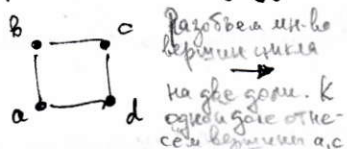 b c
a d
Разобьем мн-во
вершин цикла
на две доли. К
одной доле отне-
сём вершины a, c